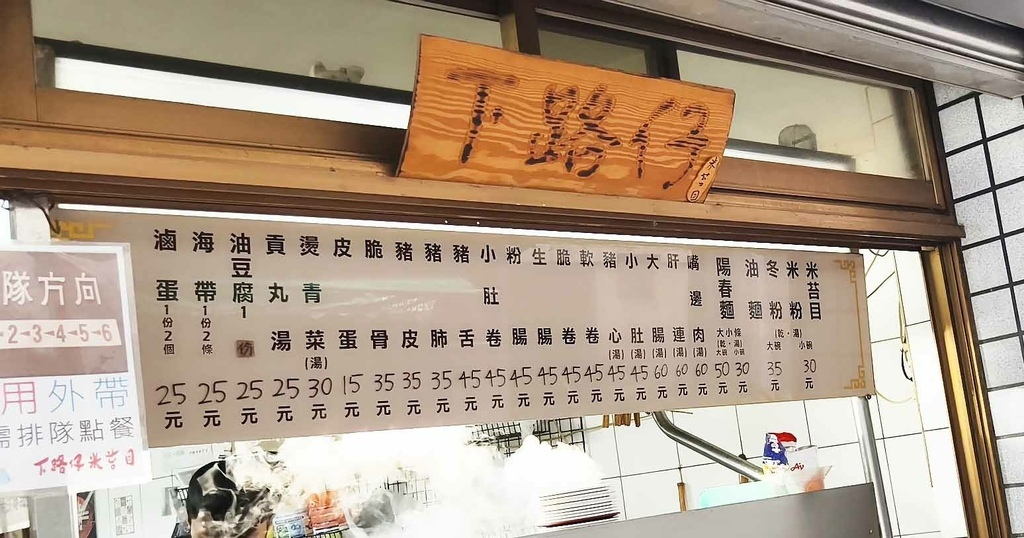 下路仔
米苔目
米苔目
米粉
冬粉
油麵
陽春麵
(乾・湯)
小碗
30元
(乾・湯)
大碗
35元
小碗
30元
大碗
50元
嘴邊肉(湯) 60元
肝連(湯) 60元
大腸(湯) 60元
小肚(湯) 45元
豬心(湯) 45元
軟卷 45元
脆卷 45元
生腸 45元
粉腸 45元
小肚卷 45元
豬舌 45元
豬肺 35元
豬皮 35元
脆骨 35元
皮蛋 15元
燙青菜(湯) 30元
貢丸湯 25元
油豆腐1份 25元
海帶1份2條 25元
滷蛋1份2個 25元
隊方向
2→3→4→5→6
用外帶
需排隊點餐
下路仔米苔目